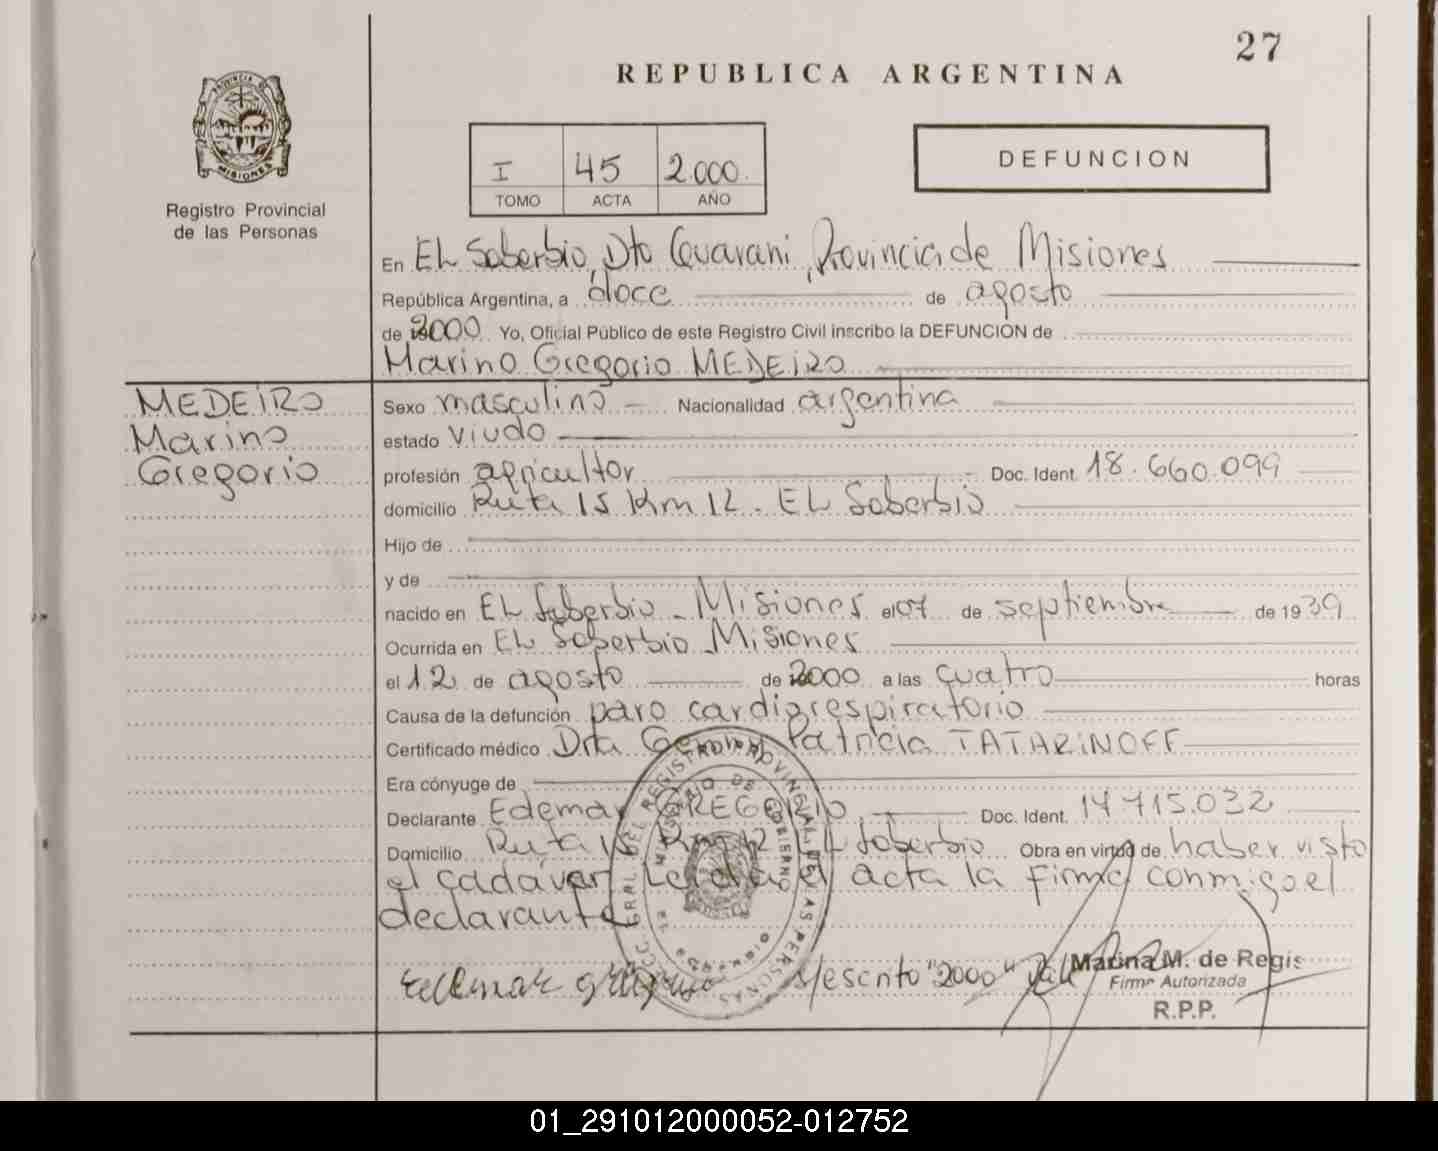 27
REPUBLICA ARGENTINA
PROVINCIA DE
MISIONES
Registro Provincial
de las Personas
I 45 2.000
TOMO ACTA AÑO
DEFUNCION
En EL Soberbio, Dto Guarani, Provincia de Misiones
República Argentina, a doce de agosto
de 2000 Yo, Oficial Público de este Registro Civil inscribo la DEFUNCION de
Marino Gregorio MEDEIRO
MEDEIRO
Marino
Gregorio
Sexo masculino Nacionalidad argentina
estado viudo
profesión agricultor Doc. Ident. 18.660.099
domicilio Ruta 15 Km 12. EL Soberbio
Hijo de
y de
nacido en EL Soberbio - Misiones el 07 de septiembre de 1939
Ocurrida en EL Soberbio Misiones
el 12 de agosto de 2000 a las cuatro horas
Causa de la defunción paro cardiorespiratorio
Certificado médico Dra Patricia TATARINOFF
Era cónyuge de
Declarante Edemar GREGORIO Doc. Ident. 14 715.032
Domicilio Ruta Km 12 EL Soberbio Obra en virtud de haber visto
el cadáver Leida el acta la firma conmigo el
declarante
Edemar s/escrito "2000" Vale
Marina M. de Regis
Firma Autorizada
R.P.P.
01_291012000052-012752